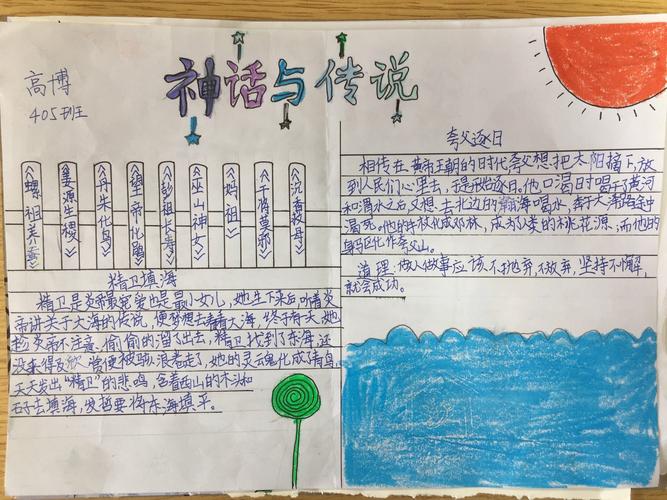 神话与传说
高博
405班
《嫘祖养蚕》
《姜源生稷》
《丹朱化鸟》
《望帝化鹃》
《彭祖长寿》
《巫山神女》
《妈祖》
《干将莫邪》
《沉香救母》
精卫填海
精卫是炎帝最宠爱也是最小女儿,她生下来后,听着炎
帝讲关于大海的传说,便梦想去看看大海,终于有一天,她
趁炎帝不注意,偷偷的溜了出去,精卫找到了东海,还
没来得及欣赏便被骇浪卷走了,她的灵魂化成了青鸟,
天天发出“精卫”的悲鸣,含着西山的木头和
石子去填海,发誓要将东海填平。
夸父逐日
相传在黄帝王朝的时代,夸父想把太阳摘下,放
到人民们心里去,于是开始逐日。他口渴时喝干了黄河
和渭水之后,又想去北边的瀚海喝水,奔于大泽路途中
渴死。他的手杖化成邓林,成为人类的桃花源,而他的
身躯化作夸父山。
道理:做人做事应该不抛弃,不放弃,坚持不懈,
就会成功。